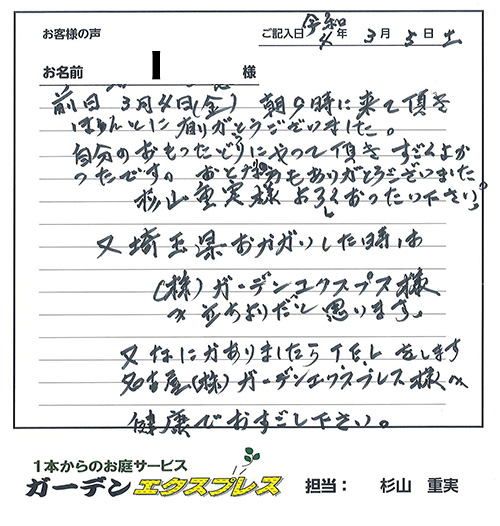 お客様の声
ご記入日 令和4年 3月 5日 土
お名前 様
前日 3月4日(金) 朝9時に来て頂き
ほんとに有りがとうございました。
自分のおもったどりにやって頂き すごくよか
ったです。 ありがとうございました
杉山重実様 よろしくおったい下さい。
又埼玉県おかがいした時は
(株)ガーデンエクスプス様
立ちよりだいと思います。
又なにかありましたらTELをします
名古屋(株)ガーデンエクスプレス様
健康でおすごし下さい。
1本からのお庭サービス
ガーデンエクスプレス 担当: 杉山 重実